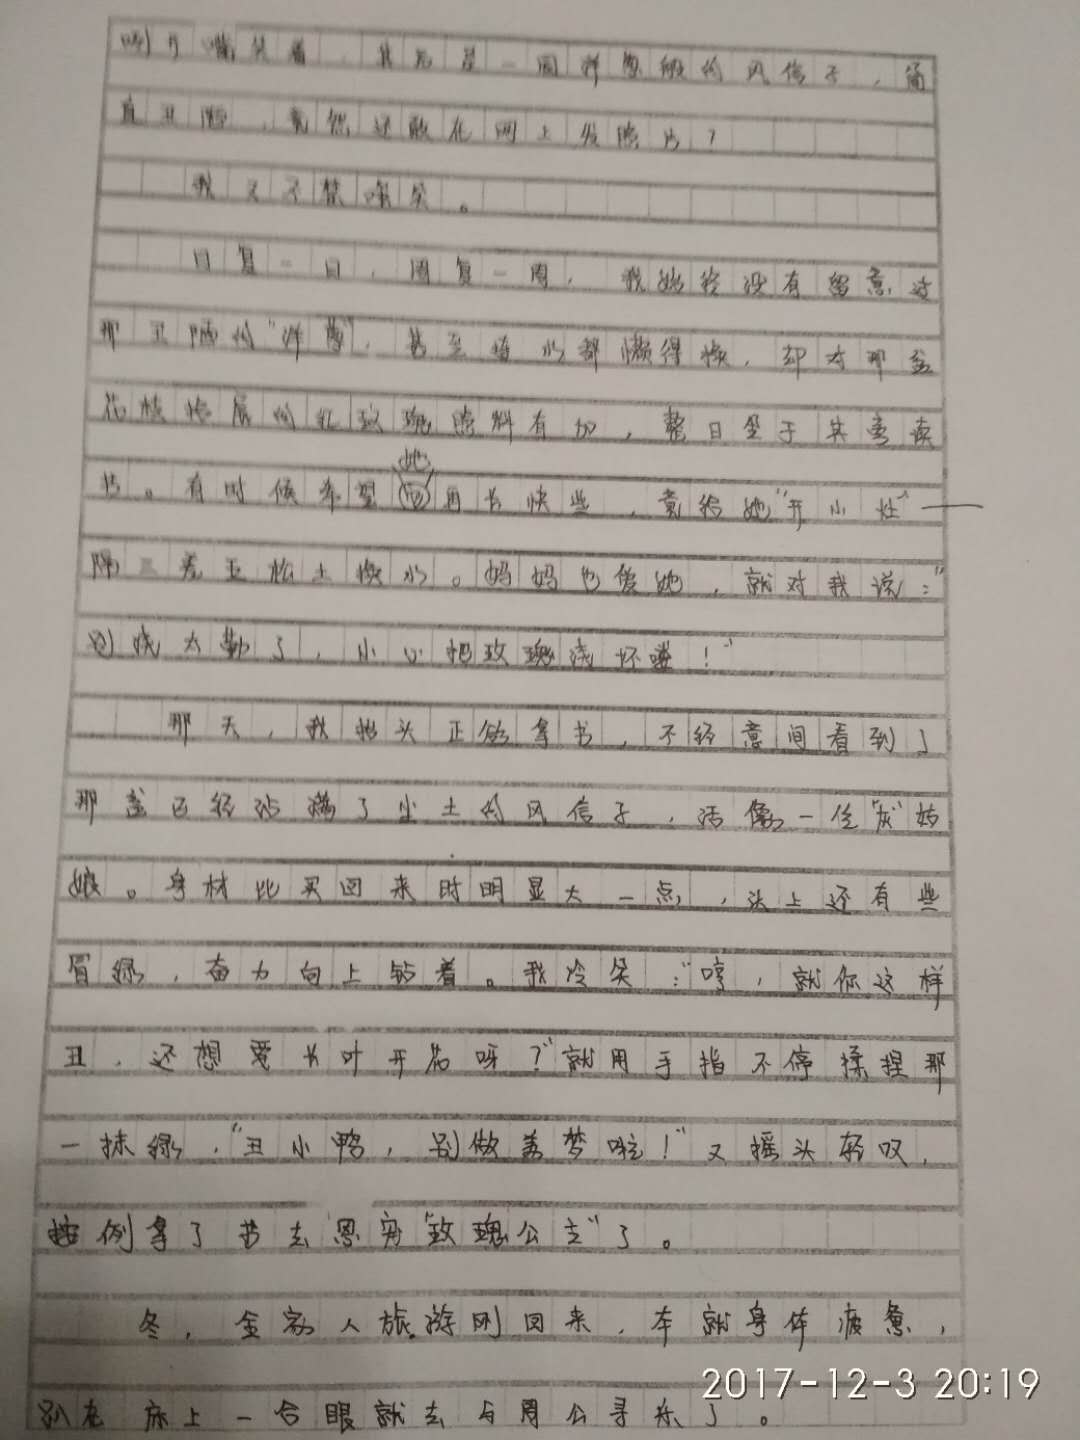 咧开嘴笑着，其无是一同样的风信子，简
直丑陋，竟然还敢在网上发照片？
我又不禁嗤笑。
日复一日，周复一周，我始终没有留意过
那丑陋的“洋葱”，甚至连水都懒得换，却对那盆
花枝招展的红玫瑰照料有加，整日坐于其旁读
书。有时候希望她再长快些，竟给她“开小灶”——
隔三差五松土换水。妈妈也爱她，就对我说：“
别浇太勤了，小心把玫瑰浇坏喽！”
那天，我抬头正欲拿书，不经意间看到了
那盆已经沾满了尘土的风信子，活像一位“灰”姑
娘。身材比买回来时明显大一点，头上还有些
冒绿，奋力向上钻着。我冷笑：“哼，就你这样
丑，还想要长叶开花呀？”就用手指不停揉捏那
一抹绿，“丑小鸭，别做美梦啦！”又摇头轻叹，
按例拿了书去恩宠“玫瑰公主”了。
冬，全家人旅游刚回来，本就身体疲惫，
趴在床上一合眼就去与周公寻乐了。
2017-12-3 20:19